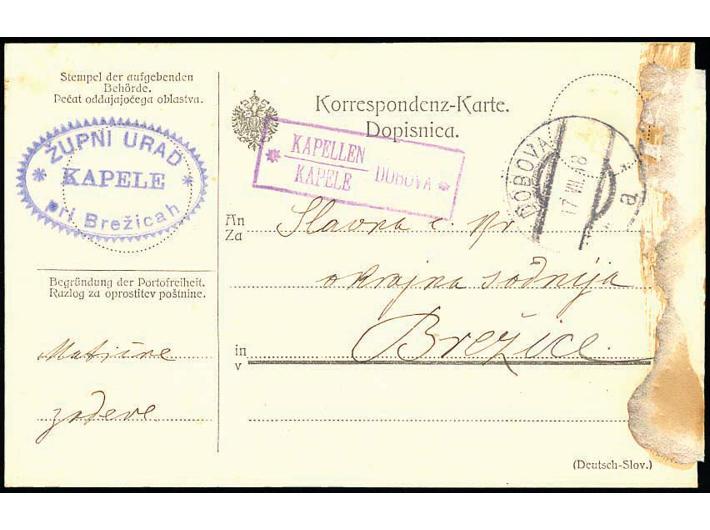 Stempel der aufgebenden
Behörde.
Pečat oddajajočega oblastva.
ŽUPNI URAD
* KAPELE *
pri Brežicah
Begründung der Portofreiheit.
Razlog za oprostitev poštnine.
Matične
zadeve
Korrespondenz-Karte.
Dopisnica.
* KAPELLEN
KAPELE DOBOVA *
DOBOVA
17 VIII 18
a
An
Za
Slavna c. kr
okrajna sodnija
in
v
Brežice.
(Deutsch-Slov.)